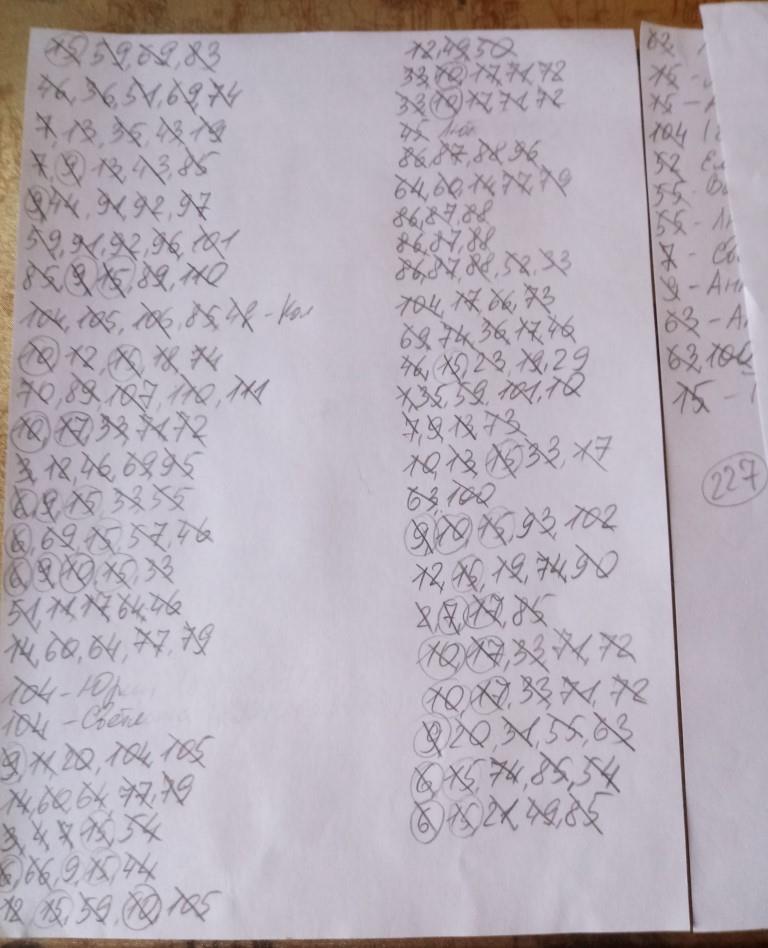 15, 59, 69, 83
46, 36, 51, 69, 74
7, 13, 35, 43, 19
7, 9, 13, 43, 85
9, 44, 91, 92, 97
59, 91, 92, 96, 101
85, 9, 15, 89, 110
104, 105, 106, 85, 48 - Кол
10, 12, 15, 18, 74
70, 89, 107, 110, 111
10, 17, 33, 71, 72
3, 18, 46, 69, 95
6, 9, 15, 53, 55
6, 69, 15, 57, 46
6, 9, 10, 15, 33
51, 11, 17, 64, 46
14, 60, 64, 77, 79
104 - Юрий
104 - Светлана
9, 11, 20, 104, 105
14, 60, 64, 77, 79
3, 4, 7, 15, 54
6, 66, 9, 15, 44
12, 15, 59, 10, 105
12, 49, 50
33, 10, 17, 71, 72
33, 10, 17, 71, 72
45
86, 87, 88, 96
64, 60, 14, 77, 79
86, 87, 88
86, 87, 88
86, 87, 88, 52, 33
104, 17, 66, 73
69, 74, 36, 17, 46
46, 15, 23, 19, 29
1, 35, 59, 101, 10
7, 9, 13, 73
10, 13, 15, 33, 17
63, 100
9, 10, 15, 93, 102
12, 15, 19, 74, 90
8, 7, 17, 85
10, 17, 33, 71, 72
10, 17, 33, 71, 72
9, 20, 31, 55, 63
6, 15, 74, 85, 54
6, 15, 21, 49, 85
62
15 -
15 -
104
52
55 -
55 -
7 - Св
9 - Ан
63 - А
63, 104
15 -
227